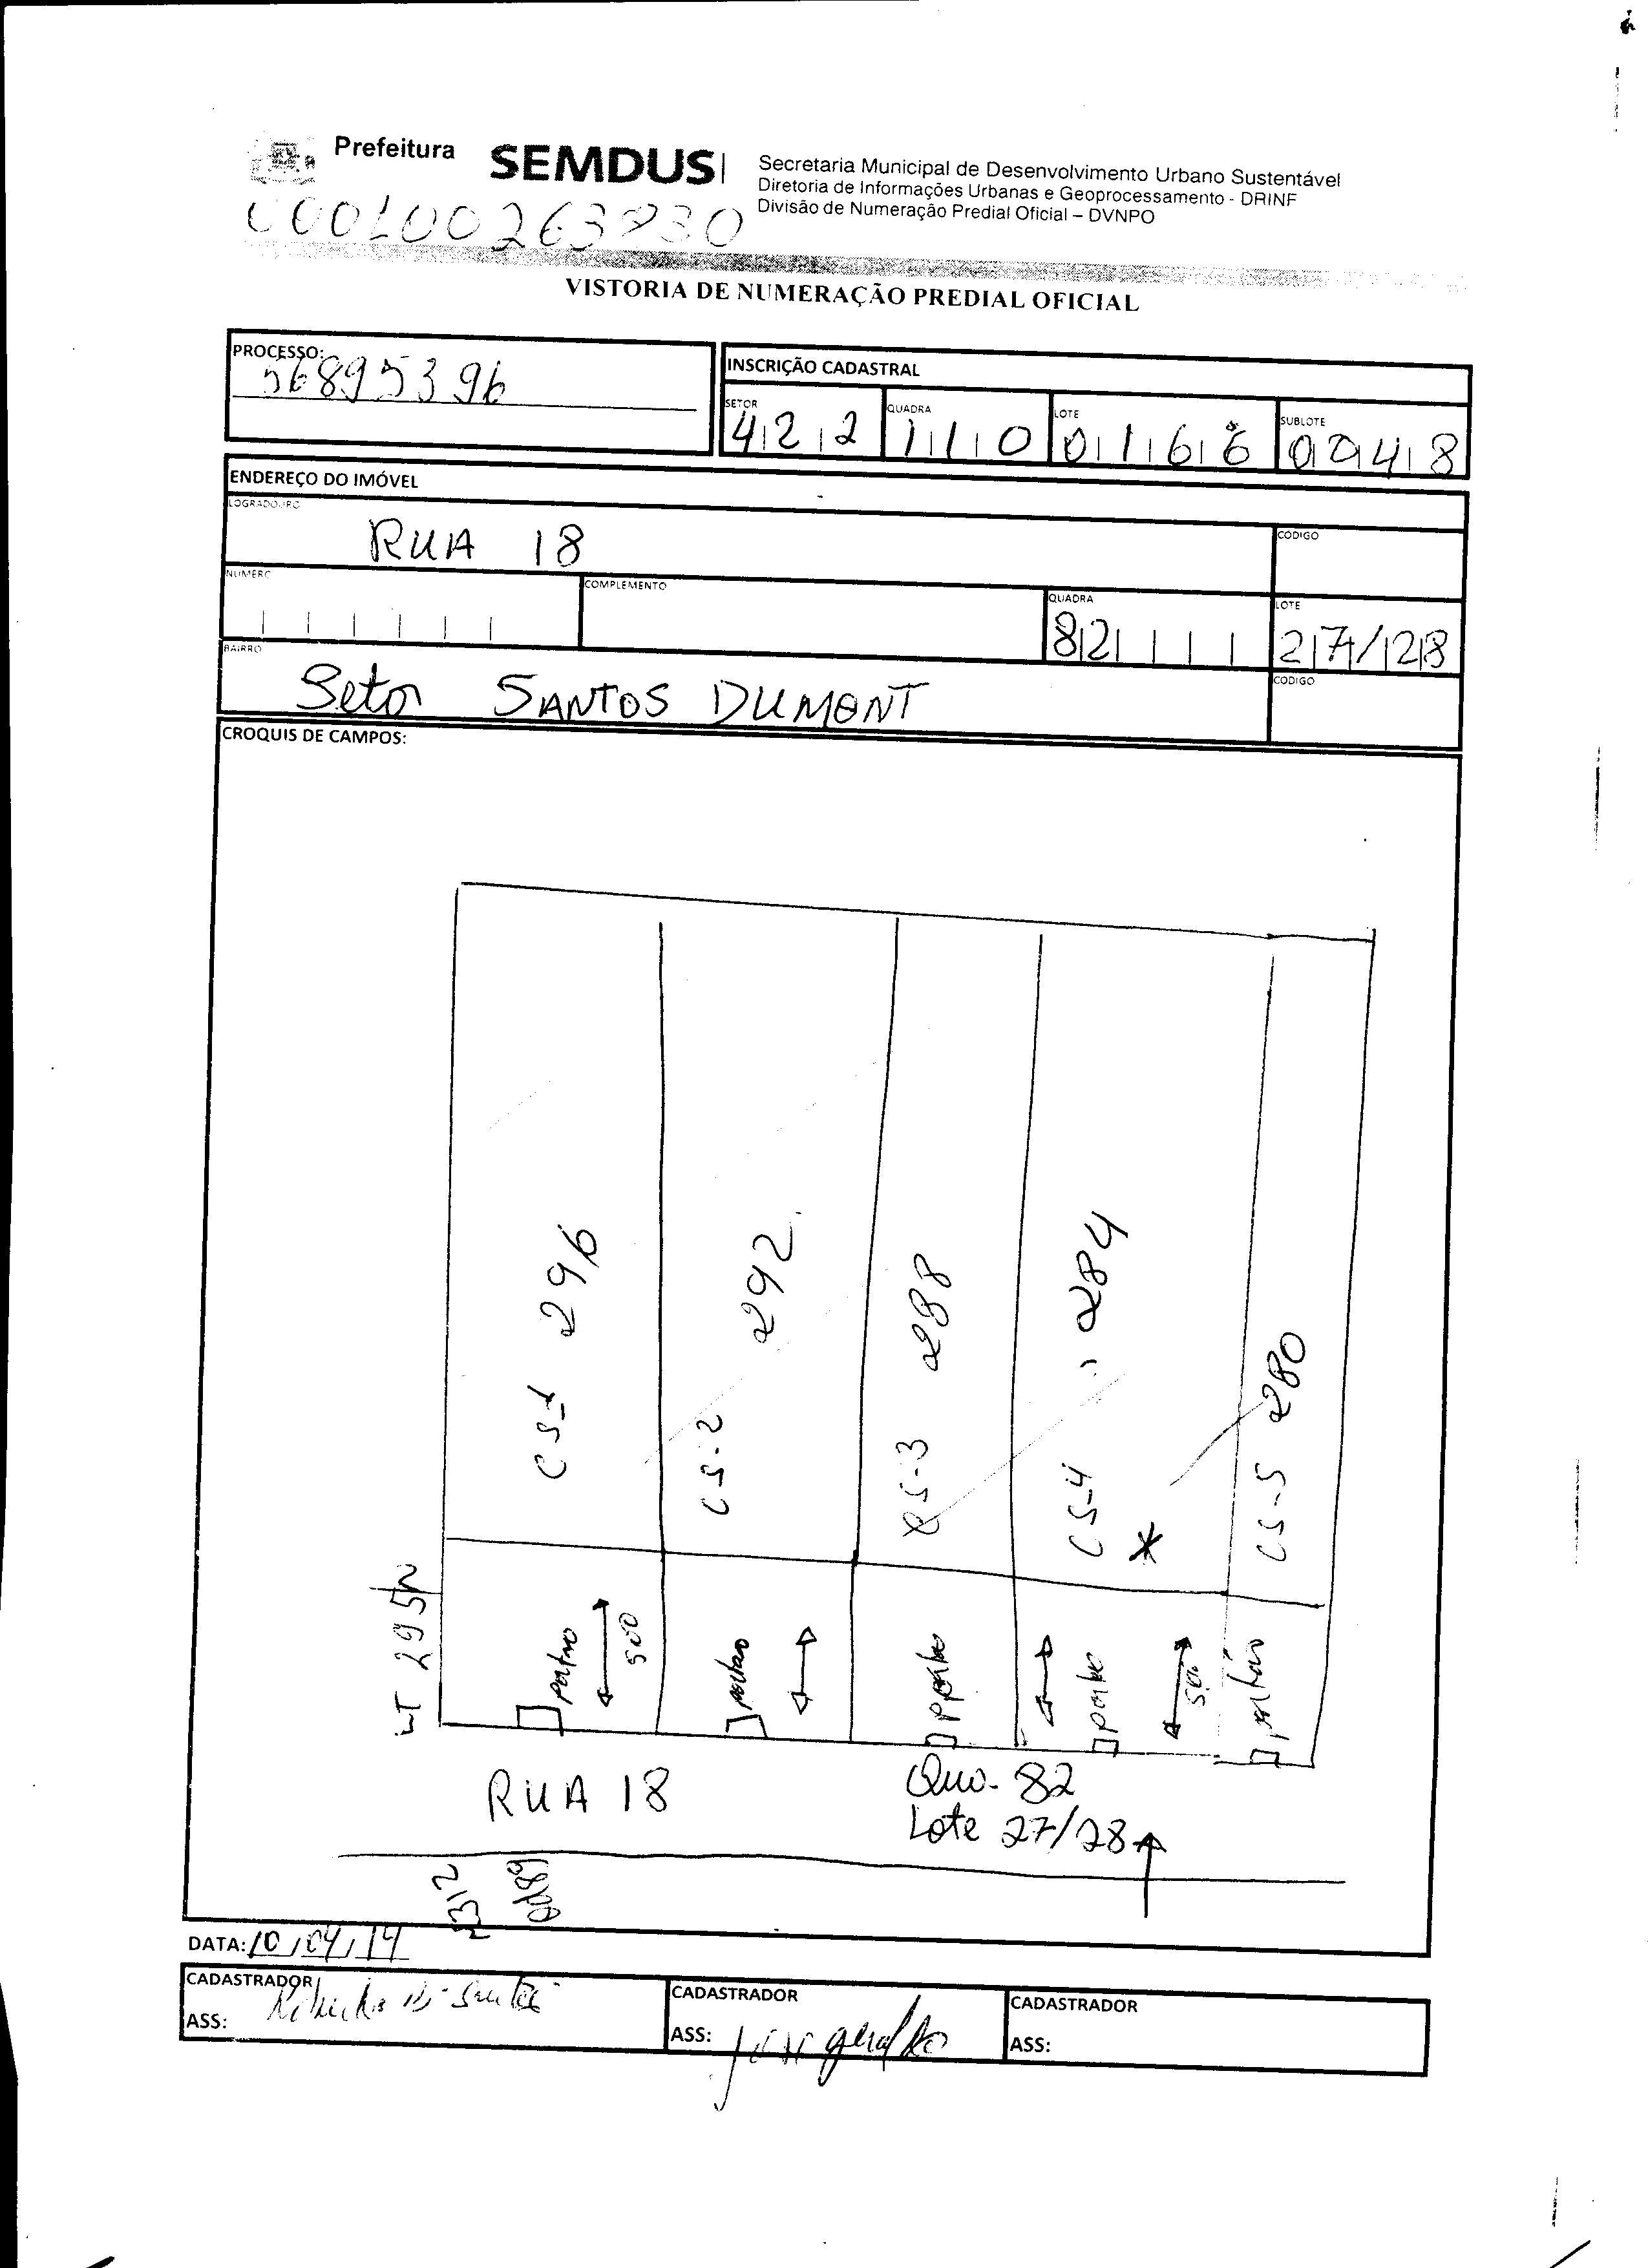 Prefeitura SEMDUS
Secretaria Municipal de Desenvolvimento Urbano Sustentável
Diretoria de Informações Urbanas e Geoprocessamento - DRINF
Divisão de Numeração Predial Oficial – DVNPO
VISTORIA DE NUMERAÇÃO PREDIAL OFICIAL
PROCESSO:
56895396
INSCRIÇÃO CADASTRAL
SETOR QUADRA LOTE SUBLOTE
422 110 0166 0048
ENDEREÇO DO IMÓVEL
LOGRADOURO CÓDIGO
RUA 18
NUMERO COMPLEMENTO QUADRA LOTE
82 27/28
BAIRRO CÓDIGO
Setor SANTOS DUMONT
CROQUIS DE CAMPOS:
CS-1 296
CS-2 292
CS-3 288
CS-4 284
*
CS-5 280
portao
500
portao
portao
500
portão
RUA 18
Qua. 82
Lote 27/28
312
DATA: 10/04/14
CADASTRADOR
ASS:
CADASTRADOR
ASS: geraldo
CADASTRADOR
ASS: